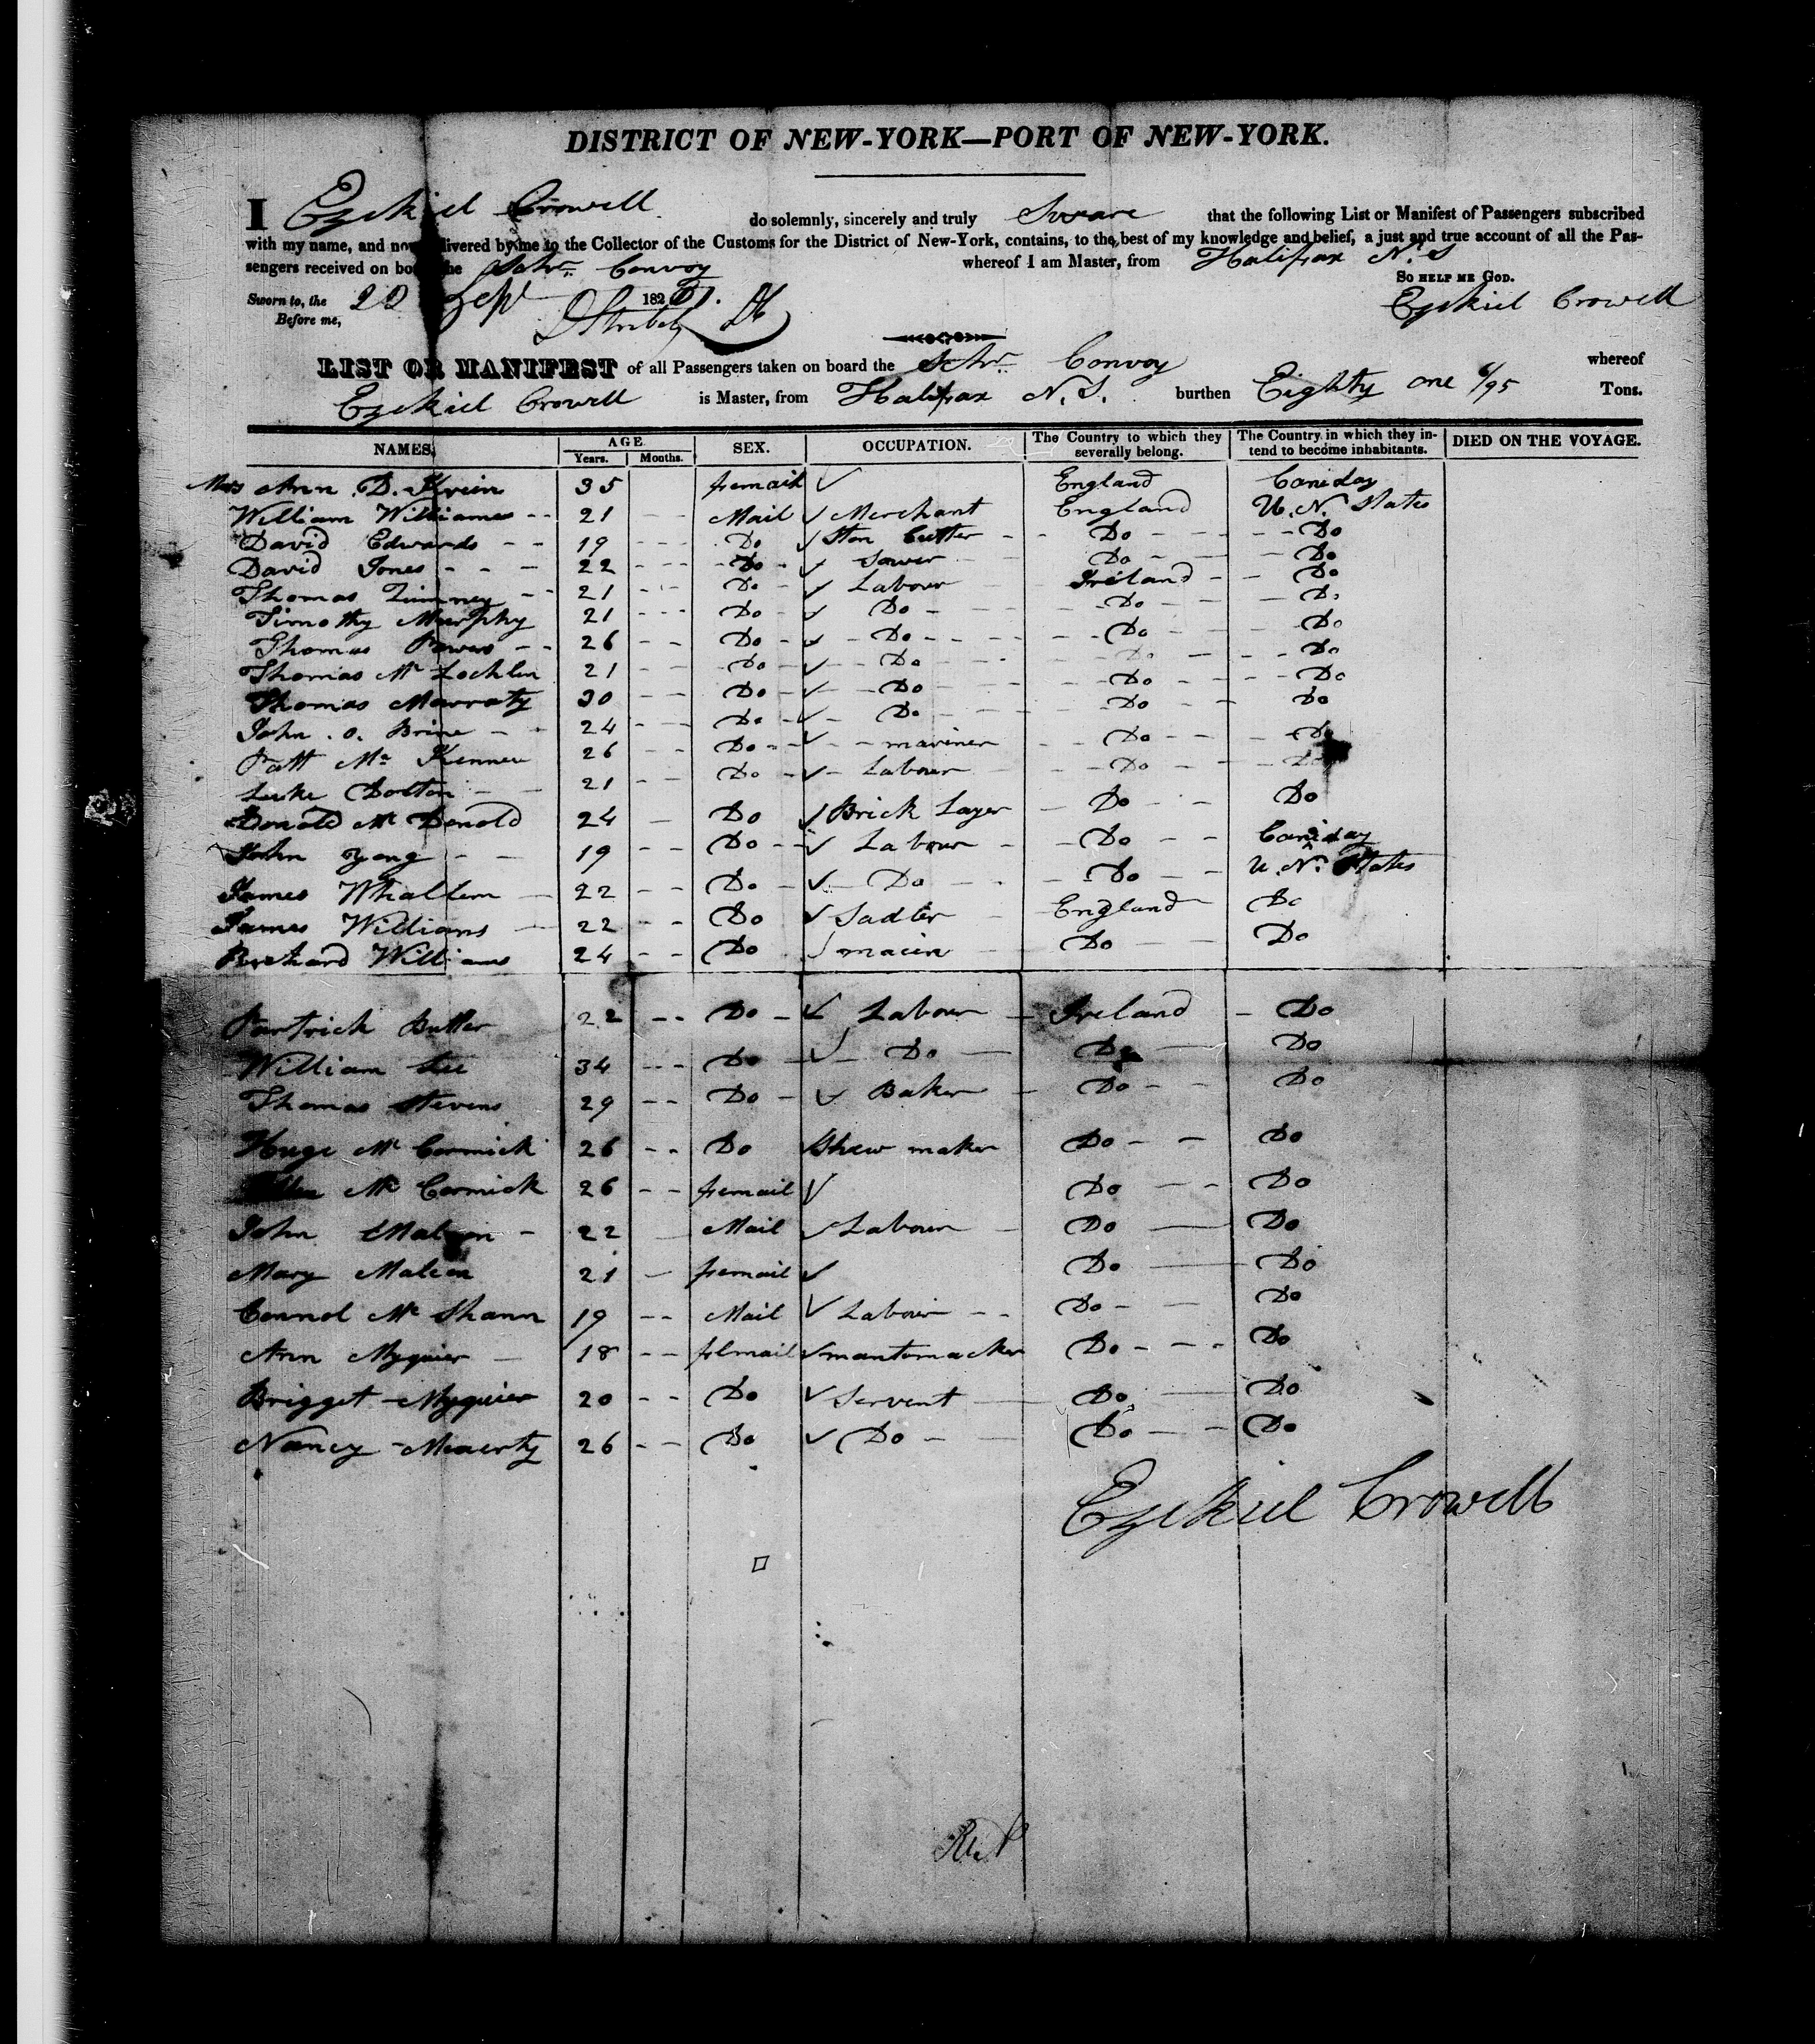 DISTRICT OF NEW-YORK—PORT OF NEW-YORK.
I Ezekiel Crowell do solemnly, sincerely and truly Sware that the following List or Manifest of Passengers subscribed
with my name, and now delivered by me to the Collector of the Customs for the District of New-York, contains, to the best of my knowledge and belief, a just and true account of all the Pas-
sengers received on board the Schr. Convoy whereof I am Master, from Halifax N. S
So HELP ME GOD.
Sworn to, the 22 Sept 182
Before me,
Ezekiel Crowell
LIST OR MANIFEST of all Passengers taken on board the Schr. Convoy whereof
Ezekiel Crowell is Master, from Halifax N. S. burthen Eighty one 6/95 Tons.
NAMES. AGE Years. Months. SEX. OCCUPATION. The Country to which they severally belong. The Country in which they in- tend to become inhabitants. DIED ON THE VOYAGE.
Mrs Ann D. 35 femail England Caniday
William Williams 21 Mail Merchant England U. N. States
David Edwards 19 Do Ston Cutter Do Do
David Jones 22 Do Sower Do Do
Thomas 21 Do Labour Ireland Do
Timothy Murphy 21 Do Do Do Do
Thomas Powers 26 Do Do Do Do
Thomas Mc Lochlin 21 Do Do Do Do
Thomas Mowraty 30 Do Do Do Do
John . O. Brine 24 Do Do Do Do
Patt Mc Kenneu 26 Do mariner Do Do
Luke Dolton 21 Do Labour Do Do
Donold Mc Donold 24 Do Brick Layer Do Do
John Yong 19 Do Labour Do Caniday
James Whallem 22 Do Do Do U. N. States
James Williams 22 Do Sadler England Do
Richard Williams 24 Do macin Do Do
Partrick Butler 22 Do Labour Ireland Do
William Lee 34 Do Do Do Do
Thomas Stevens 29 Do Baker Do Do
Huge Mc Cormick 26 Do Shew maker Do Do
Mc Cormick 26 femail Do Do
John 22 Mail Labour Do Do
Mary Malion 21 femail Do Do
Connol Mc Shann 19 Mail Labour Do Do
Ann Myquier 18 felmail mantomacker Do Do
Brigget Myquier 20 Do Servent Do Do
Nancy Meaerty 26 Do Do Do Do
Ezekiel Crowell